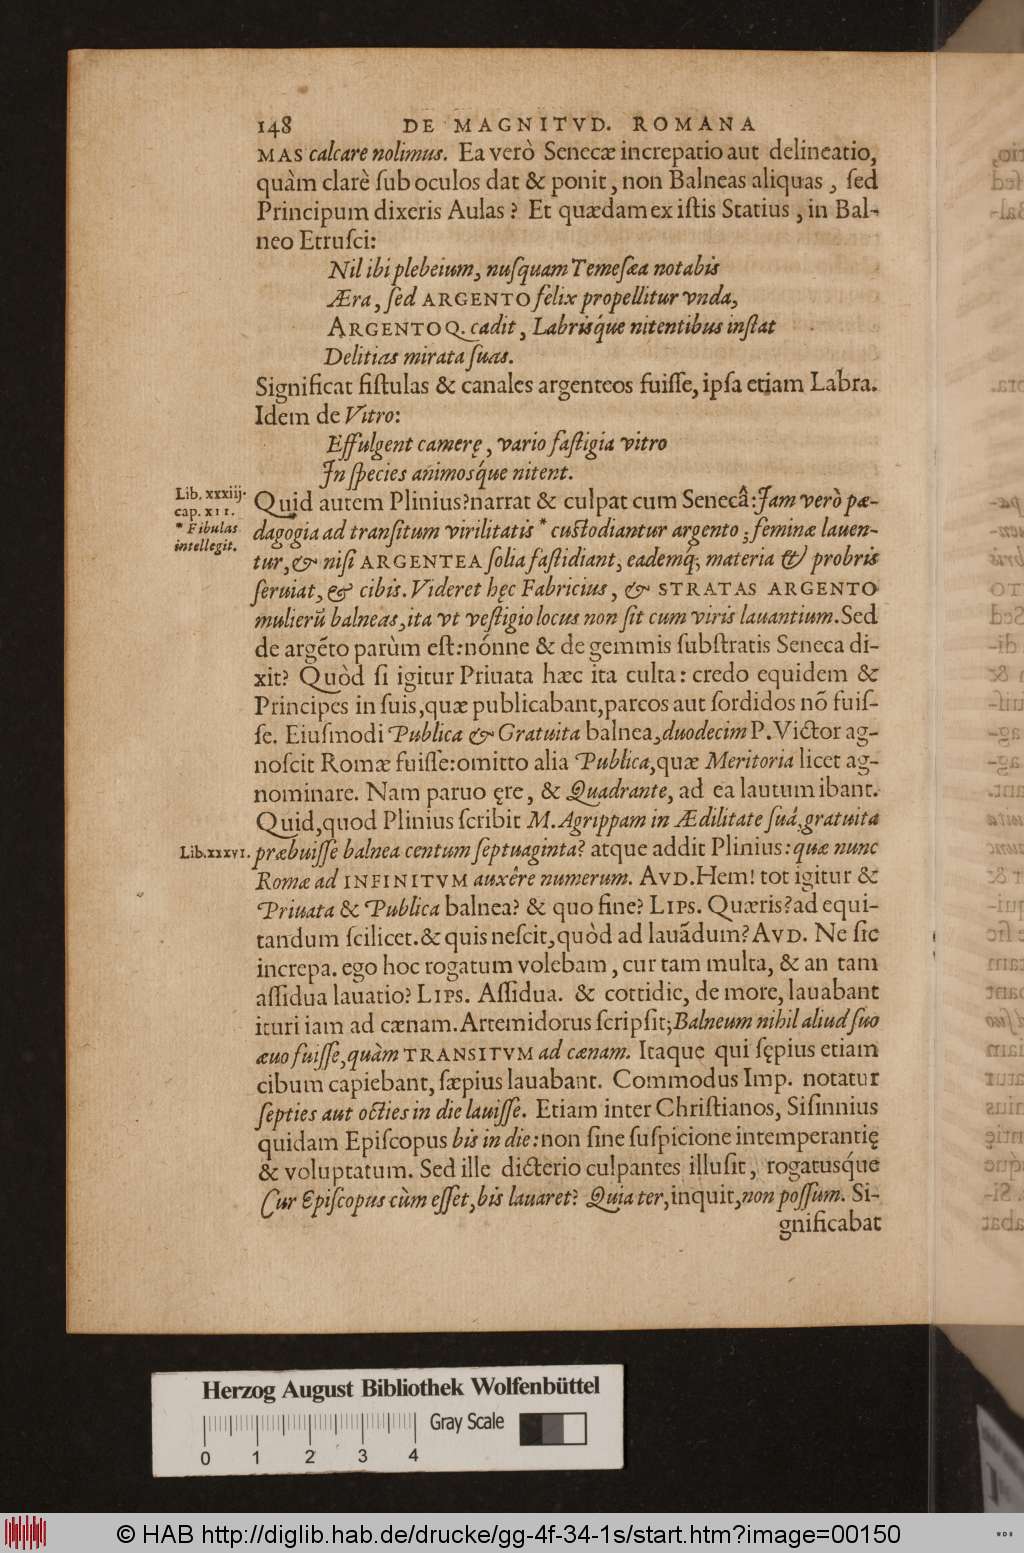 148 DE MAGNITVD. ROMANA
MAS calcare nolimus. Ea verò Senecæ increpatio aut delineatio,
quàm clarè ſub oculos dat & ponit, non Balneas aliquas, ſed
Principum dixeris Aulas? Et quædam ex iſtis Statius, in Bal-
neo Etruſci:
Nil ibi plebeium, nuſquam Temeſæa notabis
Æra, ſed ARGENTO felix propellitur vnda,
ARGENTOQ. cadit, Labrisq́ue nitentibus inſtat
Delitias mirata ſuas.
Significat fiſtulas & canales argenteos fuiſſe, ipſa etiam Labra.
Idem de Vitro:
Effulgent camerę, vario faſtigia vitro
In ſpecies animosq́ue nitent.
Lib. xxxiij.
cap. XII.
* Fibulas
intellegit.
Quid autem Plinius? narrat & culpat cum Senecâ: Jam verò pæ-
dagogia ad tranſitum virilitatis * cuſtodiantur argento; feminæ lauen-
tur, & niſi ARGENTEA ſolia faſtidiant, eademq́; materia & probris
ſeruiat, & cibis. Videret hęc Fabricius, & STRATAS ARGENTO
mulierũ balneas, ita vt veſtigio locus non ſit cum viris lauantium. Sed
de argẽto parùm eſt: nónne & de gemmis ſubſtratis Seneca di-
xit? Quòd ſi igitur Priuata hæc ita culta: credo equidem &
Principes in ſuis, quæ publicabant, parcos aut ſordidos nõ fuiſ-
ſe. Eiuſmodi Publica & Gratuita balnea, duodecim P. Victor ag-
noſcit Romæ fuiſſe: omitto alia Publica, quæ Meritoria licet ag-
nominare. Nam paruo ęre, & Quadrante, ad ea lautum ibant.
Quid, quod Plinius ſcribit M. Agrippam in Ædilitate ſuâ, gratuita
Lib. xxxvi. præbuiſſe balnea centum ſeptuaginta? atque addit Plinius: quæ nunc
Romæ ad INFINITVM auxêre numerum. AVD. Hem! tot igitur &
Priuata & Publica balnea? & quo fine? LIPS. Quæris? ad equi-
tandum ſcilicet. & quis neſcit, quòd ad lauãdum? AVD. Ne ſic
increpa. ego hoc rogatum volebam, cur tam multa, & an tam
aſſidua lauatio? LIPS. Aſſidua. & cottidie, de more, lauabant
ituri iam ad cænam. Artemidorus ſcripſit; Balneum nihil aliud ſuo
æuo fuiſſe, quàm TRANSITVM ad cænam. Itaque qui ſępius etiam
cibum capiebant, ſæpius lauabant. Commodus Imp. notatur
ſepties aut octies in die lauiſſe. Etiam inter Chriſtianos, Siſinnius
quidam Epiſcopus bis in die: non ſine ſuſpicione intemperantię
& voluptatum. Sed ille dicterio culpantes illuſit, rogatusq́ue
Cur Epiſcopus cùm eſſet, bis lauaret? Quia ter, inquit, non poſſum. Si-
gnificabat
Herzog August Bibliothek Wolfenbüttel
Gray Scale
0 1 2 3 4
© HAB http://diglib.hab.de/drucke/gg-4f-34-1s/start.htm?image=00150